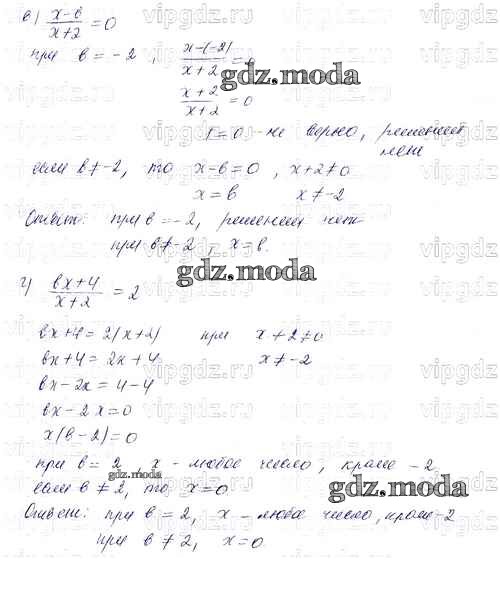 в) (x-в)/(x+2) = 0
при в = -2 , (x-(-2))/(x+2) =
(x+2)/(x+2) = 0
1=0 - не верно, решений
нет
если в≠-2, то x-в=0 , x+2≠0
x = в x ≠ -2
Ответ: при в = -2, решений нет
при в ≠ -2 , x = в.
г) (вx+4)/(x+2) = 2
вx+4 = 2(x+2) при x+2≠0
вx+4 = 2x+4 x≠-2
вx-2x = 4-4
вx-2x=0
x(в-2)=0
при в = 2 x - любое число, кроме -2
если в ≠ 2, то x=0
Ответ: при в = 2, x - любое число, кроме -2
при в ≠ 2, x = 0
gdz.moda
gdz.moda
gdz.moda
gdz.moda
vipgdz.ru